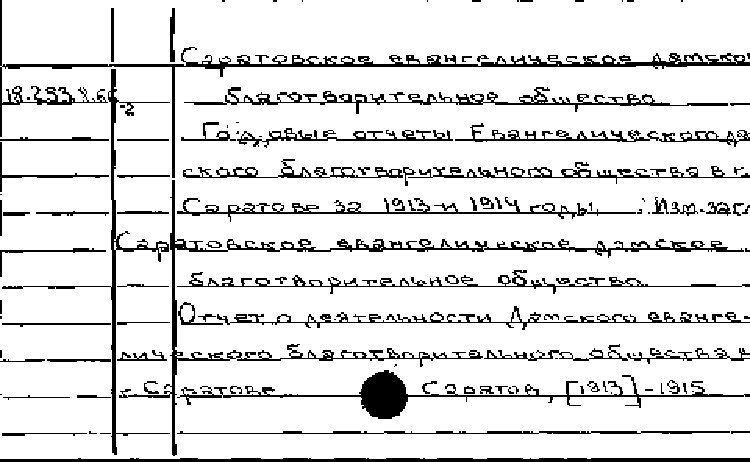 Саратовское евангелическое дамско
18.293.8.66-2 благотворительное общество
Годовые отчеты Евангелического да
ского благотворительного общества в г.
Саратове за 1913 и 1914 годы. Изм. загл
Саратовское евангелическое дамское
благотворительное общество
Отчет о деятельности Дамского еванге-
лического благотворительного общества в
г. Саратове Саратов, [1913]-1915